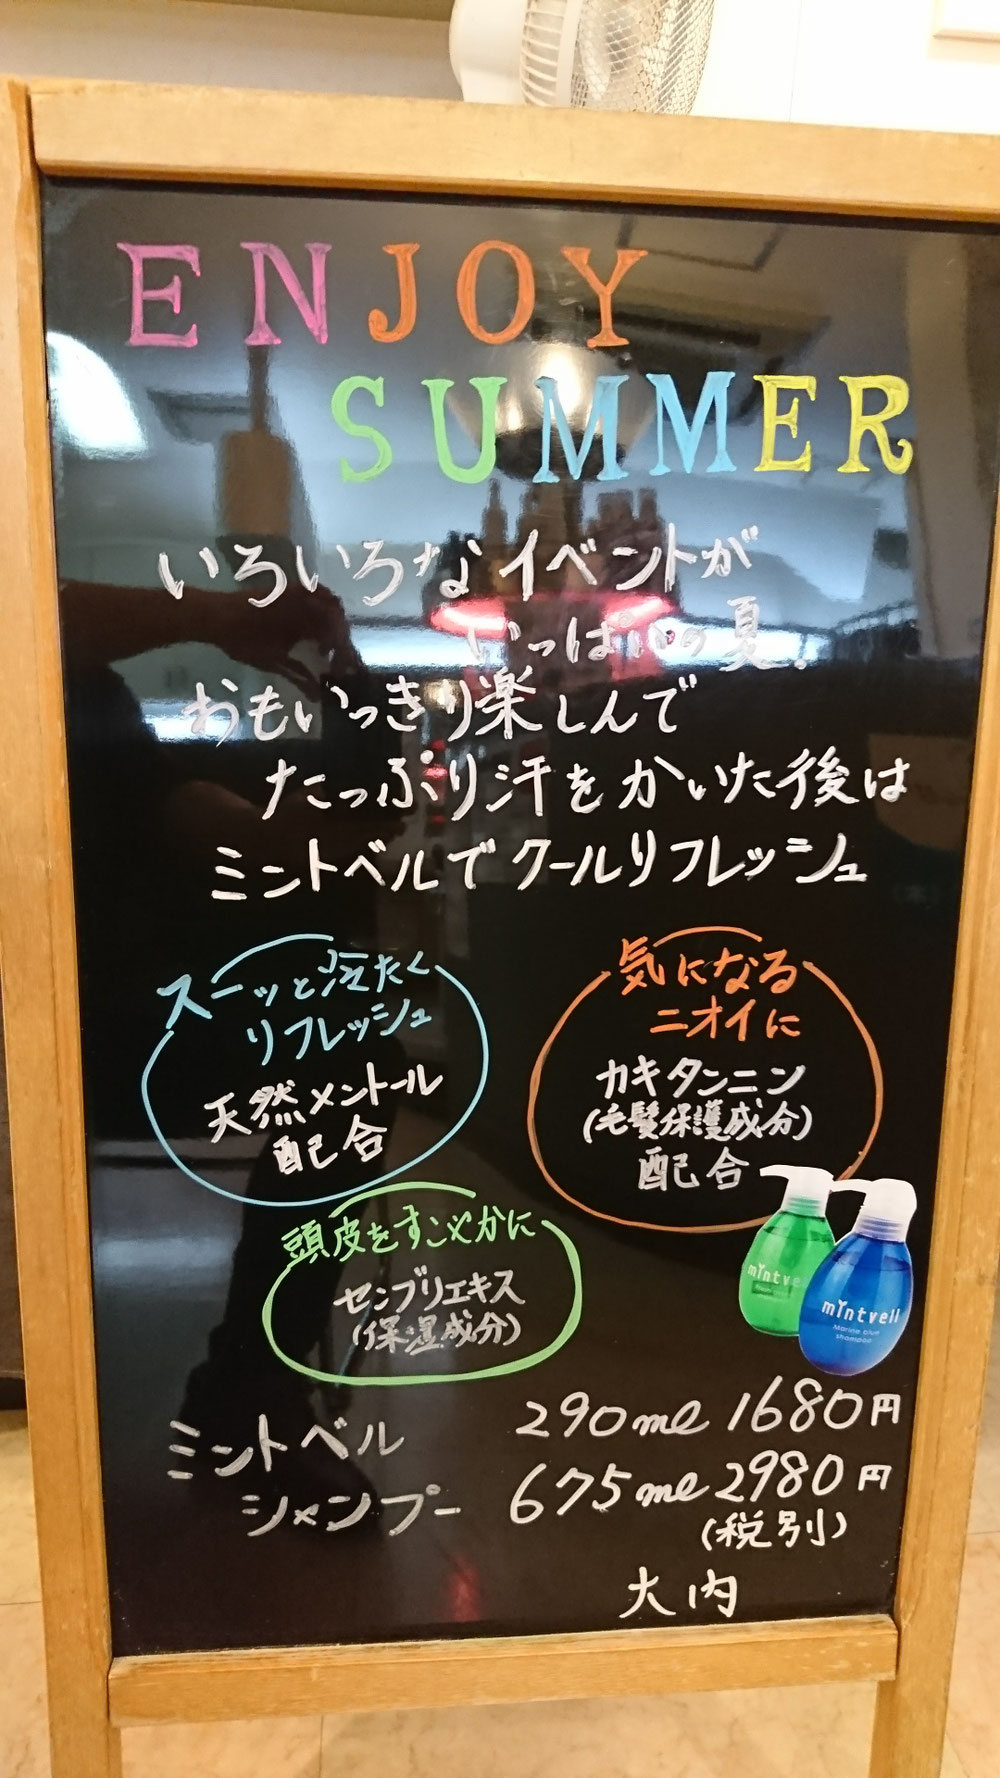 ENJOY
SUMMER
いろいろなイベントが
いっぱいの夏。
おもいっきり楽しんで
たっぷり汗をかいた後は
ミントベルでクールリフレッシュ
スーッと冷たく
リフレッシュ
天然メントール
配合
気になる
ニオイに
カキタンニン
(毛髪保護成分)
配合
頭皮をすこやかに
センブリエキス
(保湿成分)
mintvell
Marine blue
shampoo
ミントベル
シャンプー
290ml 1680円
675ml 2980円
(税別)
大内